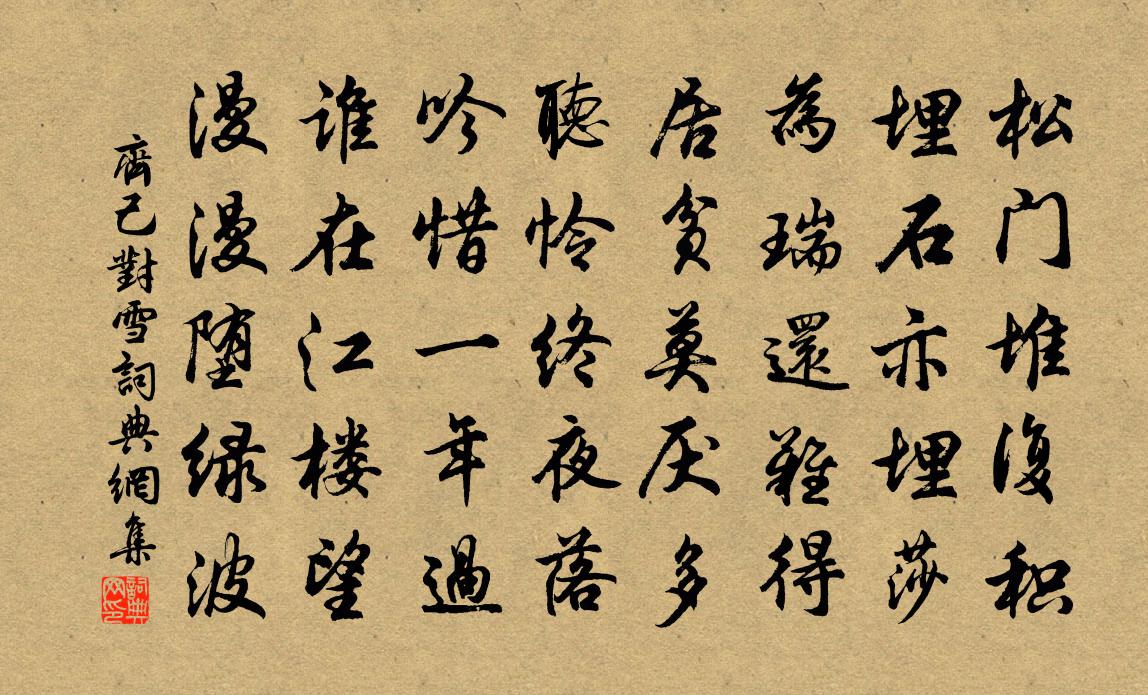 松门堆復积
埋石亦埋莎
為瑞還難得
居贫莫厌多
聽怜终夜落
吟惜一年過
谁在江楼望
漫漫堕绿波
齊己對雪詞典網集
詞典網印